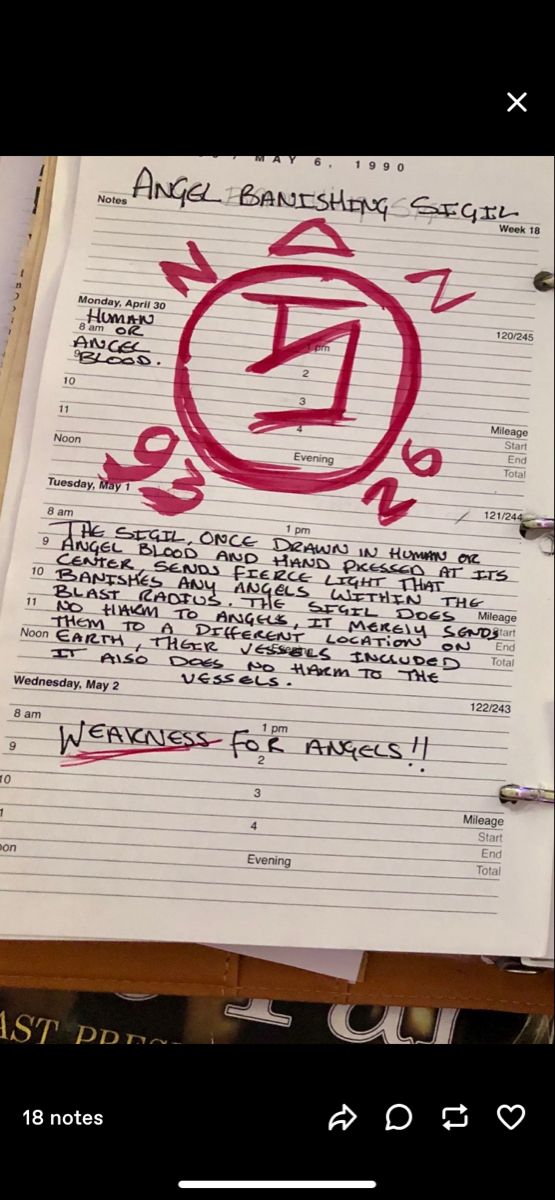 MAY 6, 1990
ANGEL BANISHING SIGIL
Notes
Week 18
Monday, April 30
120/245
HUMAN
8 am OR
ANGEL
9 BLOOD.
1 pm
2
10
3
11
4
Mileage
Noon
Evening
Start
End
Total
Tuesday, May 1
121/244
8 am
1 pm
THE SIGIL, ONCE DRAWN IN HUMAN OR
9 ANGEL BLOOD AND HAND PRESSED AT ITS
CENTER SENDS FIERCE LIGHT THAT
10 BANISHES ANY ANGELS WITHIN THE
BLAST RADIUS. THE SIGIL DOES Mileage
11 NO HARM TO ANGELS, IT MERELY SENDS Start
THEM TO A DIFFERENT LOCATION ON End
Noon EARTH, THEIR VESSELS INCLUDED Total
IT ALSO DOES NO HARM TO THE
VESSELS.
Wednesday, May 2
122/243
8 am
1 pm
WEAKNESS FOR ANGELS!!
9
2
10
3
4
Mileage
Start
Evening
End
Total
18 notes